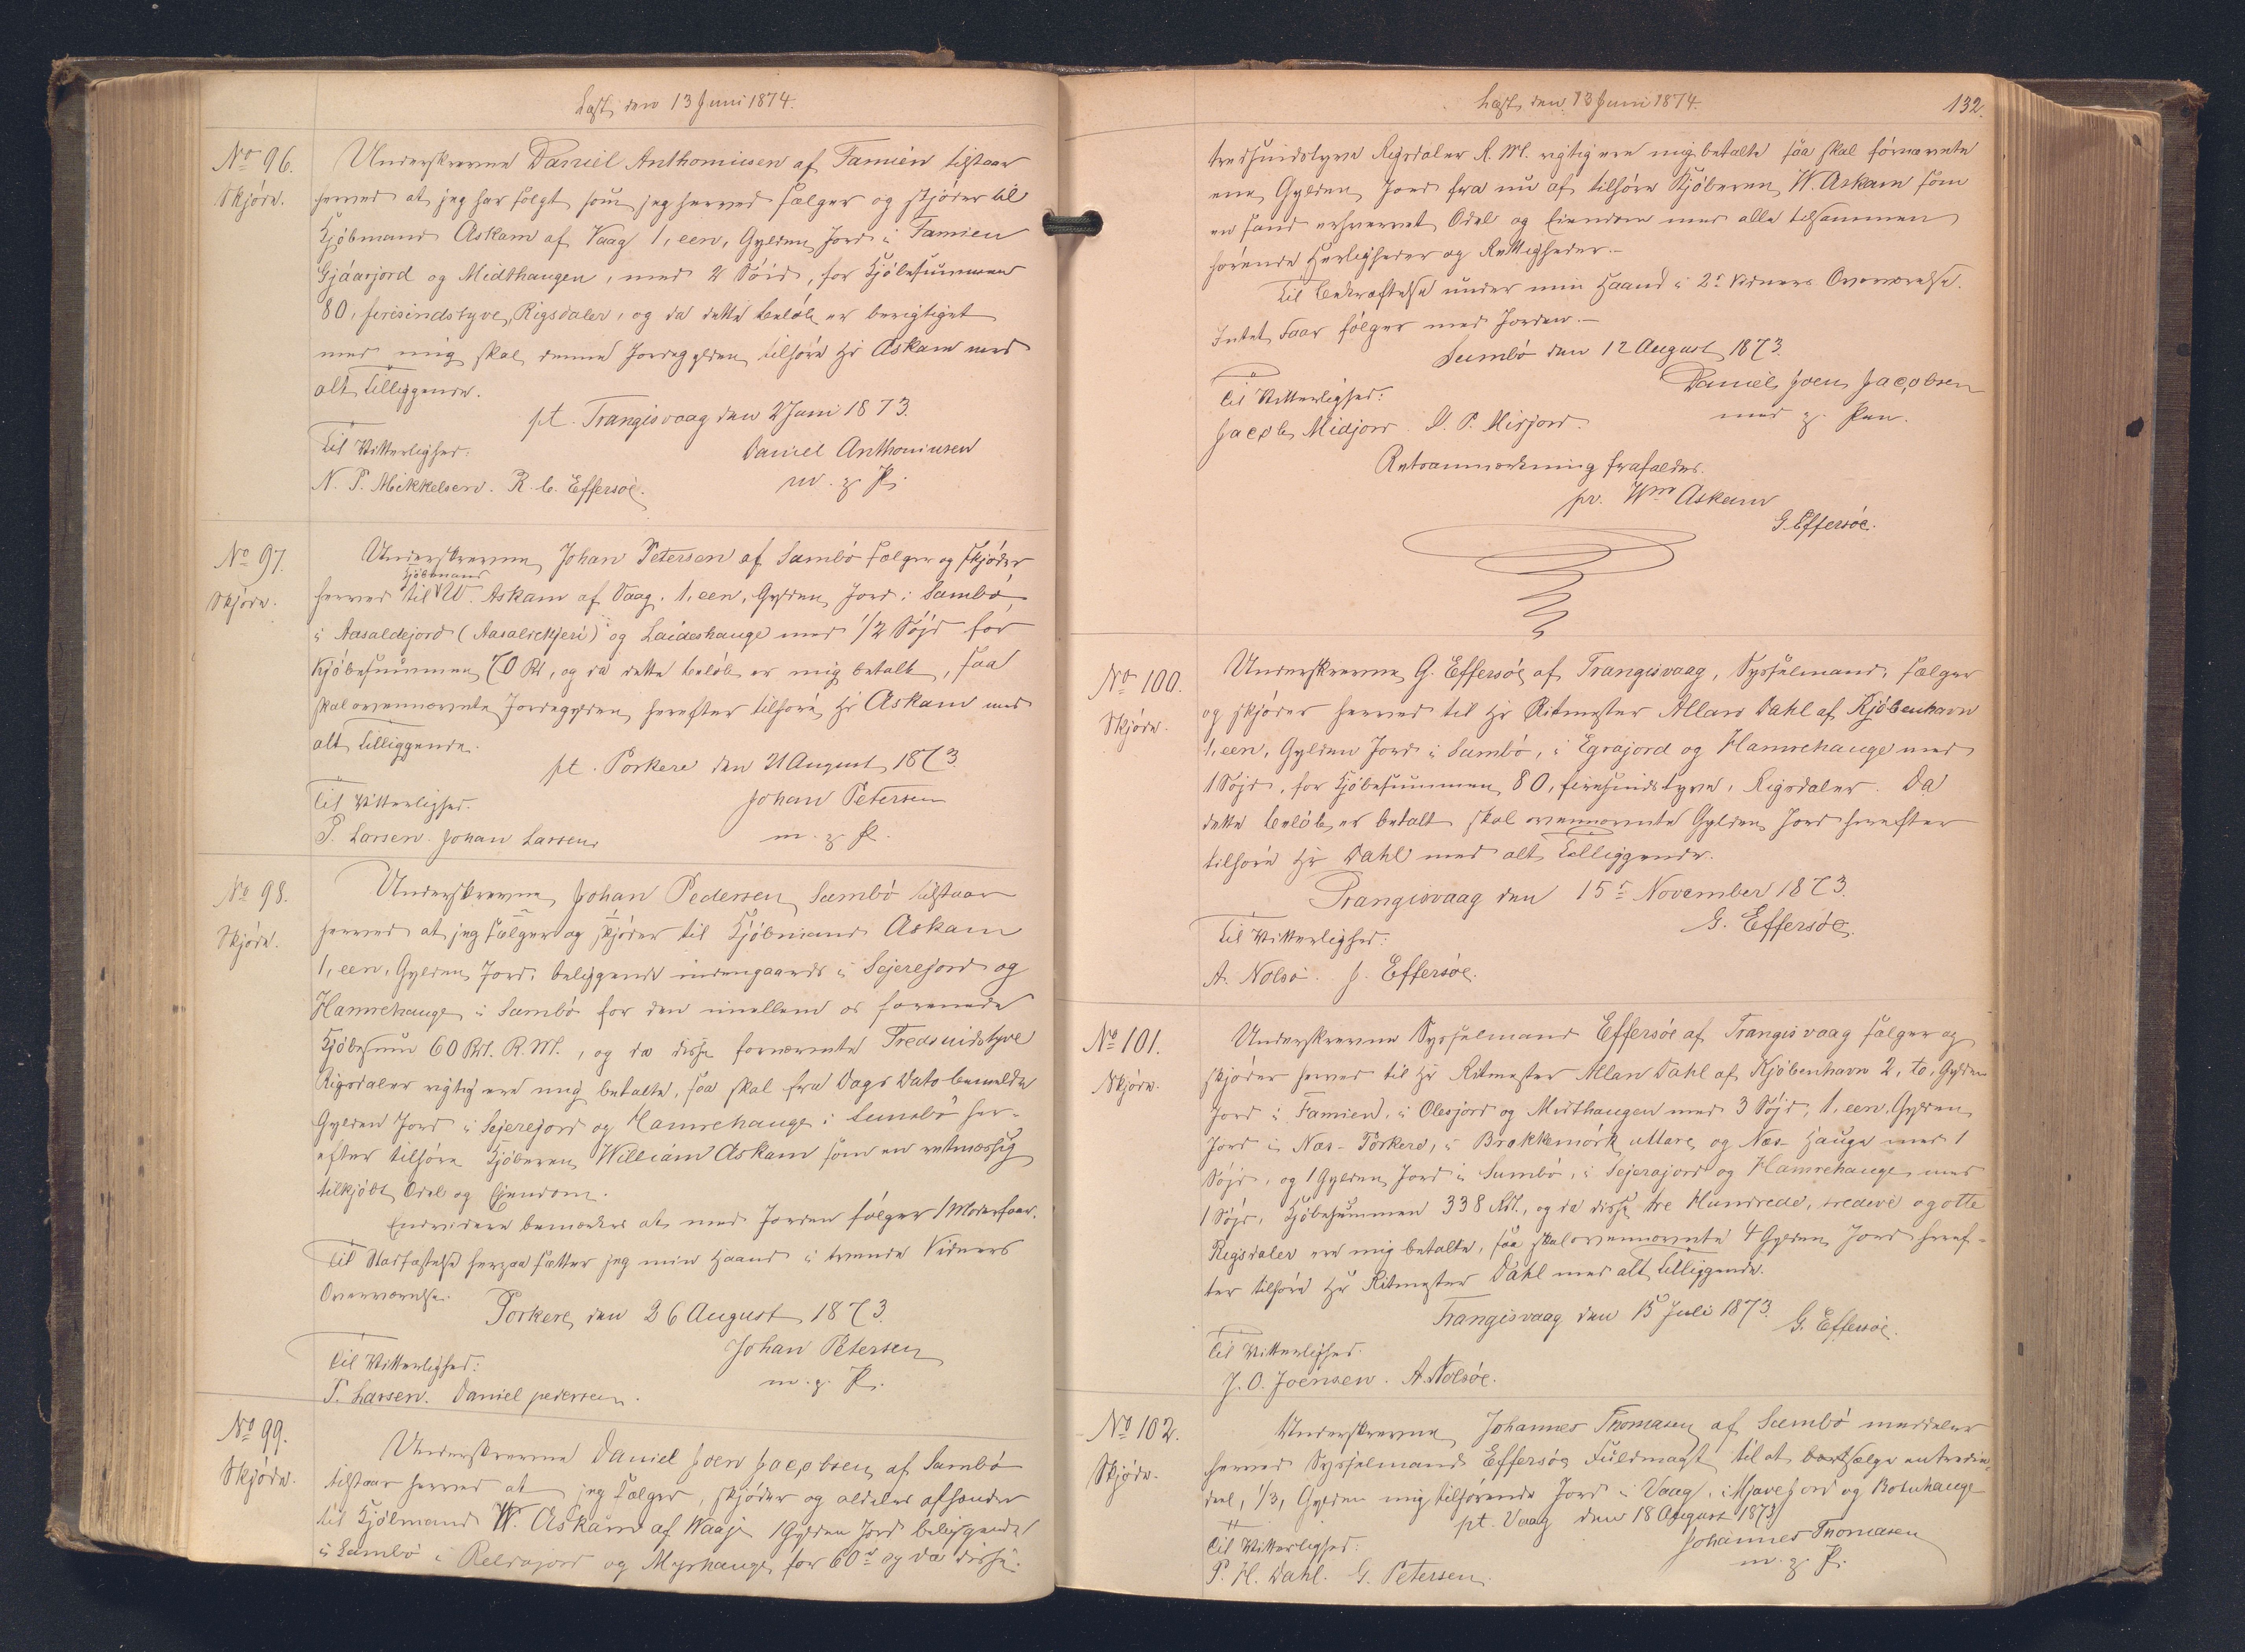 Læst den 13 Juni 1874.
No 96.
Skjøde.
Underskrevne Daniel Anthoniusen af Famien tilstaar
herved at jeg har solgt som jeg herved sælger og skjøder til
Kjøbmand Askam af Vaag 1, een, Gylden Jord i Famien
Gjáarjord og Midthaugen, med 2 Söid, for Kjöbesummen
80, firesindstyve, Rigsdaler, og da dette Beløb er berigtiget
med mig skal denne Jordegylden tilhøre Hr Askam med
alt Tilliggende.
pt. Trangisvaag den 2 Juni 1873.
Til Vitterlighed:
Daniel Anthoniusen
N. P. Mikkelsen. R. C. Effersöe.
m. g. P.
No 97.
Skjøde.
Underskrevne Johan Petersen af Sumbö sælger og skjöder
Kjöbmand
herved til W. Askam af Vaag, 1, een, Gylden Jord i Sumbö,
i Aasaldejord (Aasalrekjeri) og Laideshauge med 1/2 Söjd for
Kjöbesummen 70 Rd, og da dette Belöb er mig betalt, saa
skal ovennævnte Jordegylden herefter tilhøre Hr Askam med
alt Tilliggende.
pt. Porkere den 21 August 1873.
Til Vitterlighed.
Johan Petersen
P. Larsen. Johan Larsen
m. g. P.
No 98.
Skjøde.
Underskrevne Johan Pedersen Sumbö tilstaar
herved at jeg sælger og skjöder til Kjöbmand Askam
1, een, Gylden Jord, beliggende indengaards i Sejerejord og
Hamrehauge i Sumbö for den imellem os forenede
Kjöbesum 60 Rd. R.M., og da disse fornævnte Tredsindstyve
Rigsdaler rigtig ere mig betalte, saa skal fra Dags Dato bemeldte
Gylden Jord i Sejerejord og Hamrehauge i Sumbö her-
efter tilhöre Kjöberen William Askam som en retmæssig
tilkjöbt Odel og Ejendom.
Endvidere bemærkes at med Jorden fölger 1 Moderfaar.
Til Stadfæstelse herpaa sætter jeg min Haand i tvende Vidners
Overværelse.
Porkere, den 26 August 1873.
Til Vitterlighed:
Johan Petersen
P. Larsen. Daniel pedersen.
m. g. P.
No 99.
Skjöde.
Underskrevne Daniel Joen Jacobsen af Sumbö
tilstaar herved at jeg sælger, skjöder og aldeles afhænder
til Kjöbmand W. Askam af Waaje 1 Gylden Jord beliggende
i Sumbö i Reldajord og Myrhauge for 60 rd og da disse
Læst den 13 Juni 1874.
132.
tredsindstyve Rigsdaler R. M. rigtig ere mig betalte saa skal fornævnte
een Gylden Jord fra nu af tilhöre Kjöberen W. Askam som
en sand erhvervet Odel og Eiendom med alle tilsammen
hörende Herligheder og Rettigheder.-
Til Bekræftelse under min Haand i 2de Vidners Overværelse.
Intet Faar fölger med Jorden.-
Sumbö den 12 August 1873.
Til Vitterlighed:
Daniel Joen Jacobsen
Jacob Midjord. D. P. Misjord.
med g. Pen.
Retsanmærkning frafaldes.
pr. Wm Askam
G. Effersöe.
No 100.
Skjöde.
Underskrevne G. Effersöe af Trangisvaag, Sysselmand, sælger
og skjöder herved til Hr Ritmester Allan Dahl af Kjöbenhavn
1, een, Gylden Jord i Sumbö, i Egrajord og Hamrehauge med
1 Söjd, for Kjöbesummen 80, firesindstyve, Rigsdaler. Da
dette Belöb er betalt skal ovennævnte Gylden Jord herefter
tilhöre Hr Dahl med alt Tilliggende.
Trangisvaag den 15de November 1873.
Til Vitterlighed:
G. Effersöe.
A. Nolsö. J. Effersöe.
No 101.
Skjöde.
Underskrevne Sysselmand Effersöe af Trangisvaag sælger og
skjöder herved til Hr Ritmester Allan Dahl af Kjöbenhavn 2, to, Gylden
Jord i Famien, i Olesjord og Midthaugen med 3 Söjd, 1, een, Gylden
Jord i Næs-Porkere, i Brokkemörk uttare og Næs-Hauge med 1
Söjd, og 1 Gylden Jord i Sumbö, i Sejerajord og Hamrehauge med
1 Söjd, Kjöbesummen 338 Rd., og da disse tre Hundrede, tredeve og otte
Rigsdaler ere mig betalte, saa skal ovennævnte 4 Gylden Jord heref-
ter tilhöre Hr Ritmester Dahl med alt Tilliggende.
Trangisvaag den 15 Juli 1873.
G. Effersöe.
Til Vitterlighed.
J. O. Joensen. A. Nolsöe.
No 102.
Skjöde.
Underskrevne Johannes Thomasen af Sumbö meddeler
herved Sysselmand Effersöe Fuldmagt til at bortsælge en tredie-
deel, 1/3, Gylden mig tilhörende Jord i Vaag, i Mjavejord og Botnhauge
pt. Vaag den 18 August 1873
Til Vitterlighed:
Johannes Thomasen
P. H. Dahl. G. Petersen.
m. g. P.